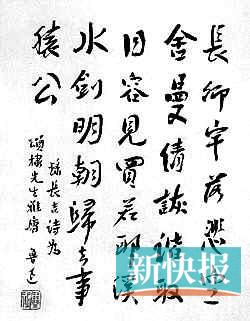 長卿牢落悲空
舍曼倩詼諧取
自容見買若耶溪
水劍明朝歸去事
猿公
錄長吉詩為
頌棣先生雅屬
魯迅
新快报